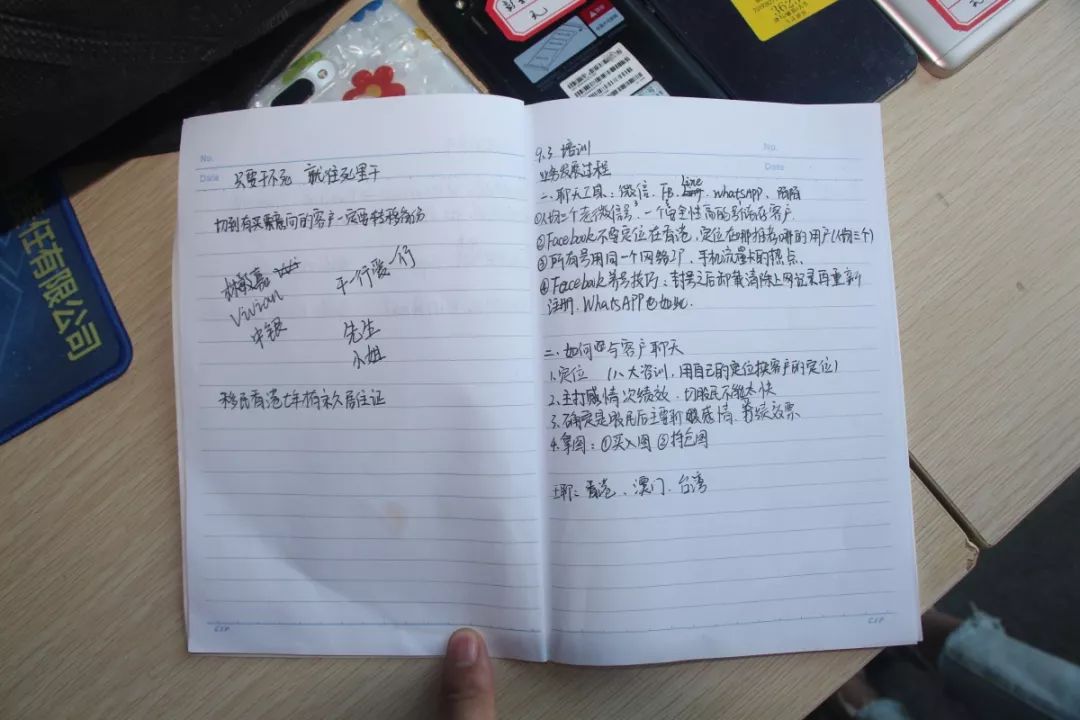 责任有限公司
元
No.
Date
只要干不死 就往死里干
切到有买票意向的客户一定要转移身份
Vivian
干一行爱一行
中银
先生
小姐
移民香港七年拥有永久居住证
No.
Date
9.3 培训
业务发展过程
一、聊天工具：微信、FB、Line、whatsAPP、陌陌
①人均二个老微信号，一个安全性高的号储存客户
②Facebook不要定位在香港，定位在哪推荐哪的用户(人均三个)
③所有号用同一个网络工厂，手机流量卡的热点、
④Facebook养号技巧：封号之后卸载清除上网记录再重新
注册、WhatsAPP也如此.
二、如何与客户聊天
1.定位 (八大咨训，用自己的定位换客户的定位)
2.主打感情次绩效，切股民不能太快
3.确定是股民后主要聊感情、绩效票
4.拿图：①买入图 ②持仓图
主聊：香港、澳门、台湾